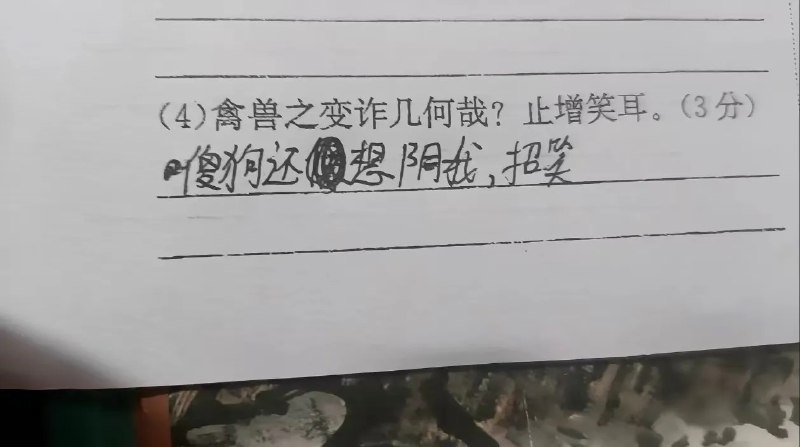 (4)禽兽之变诈几何哉？止增笑耳。(3分)
傻狗还想阴我,招笑